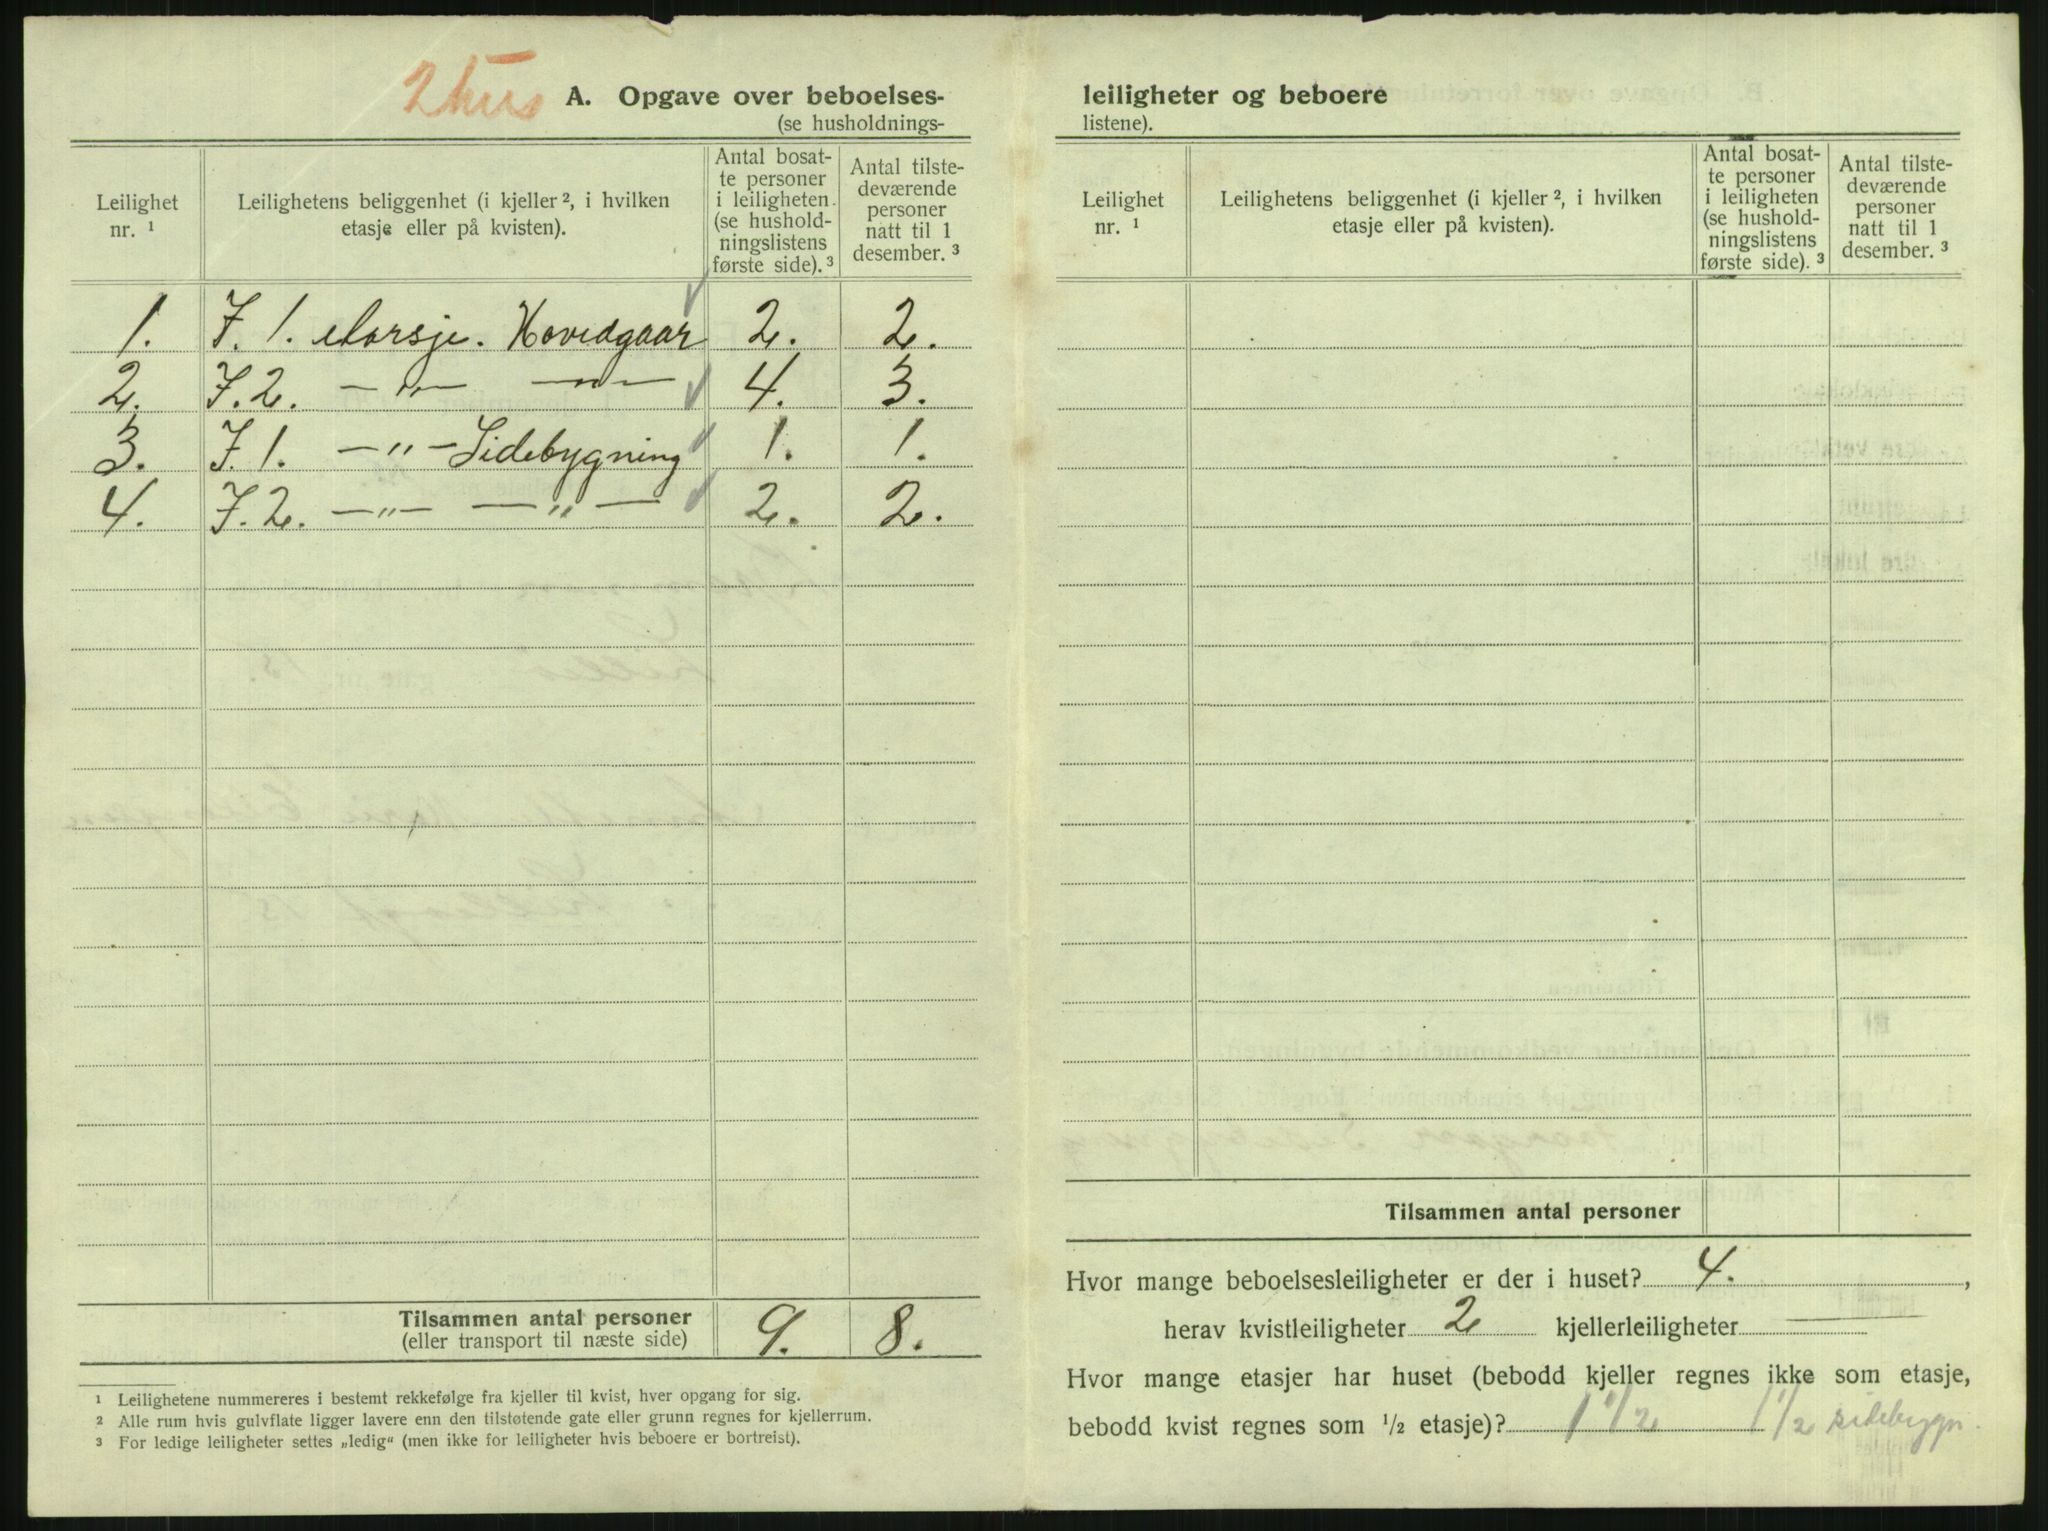 2 hus
A. Opgave over beboelses-
(se husholdnings-
leiligheter og beboere
listene).
Leilighet nr. ¹
Leilighetens beliggenhet (i kjeller ², i hvilken etasje eller på kvisten).
Antal bosatte personer i leiligheten (se husholdningslistens første side). ³
Antal tilstedeværende personer natt til 1 desember. ³
1. I. 1. etasje. Hovedgaar 2. 2.
2. I. 2. —„— —„— 4. 3.
3. I. 1. —„— Sidebygning 1. 1.
4. I. 2. —„— —„— 2. 2.
Tilsammen antal personer 9. 8.
(eller transport til næste side)
¹ Leilighetene nummereres i bestemt rekkefølge fra kjeller til kvist, hver opgang for sig.
² Alle rum hvis gulvflate ligger lavere enn den tilstøtende gate eller grunn regnes for kjellerrum.
³ For ledige leiligheter settes „ledig“ (men ikke for leiligheter hvis beboere er bortreist).
Leilighet nr. ¹
Leilighetens beliggenhet (i kjeller ², i hvilken etasje eller på kvisten).
Antal bosatte personer i leiligheten (se husholdningslistens første side). ³
Antal tilstedeværende personer natt til 1 desember. ³
Tilsammen antal personer
Hvor mange beboelsesleiligheter er der i huset? 4. ,
herav kvistleiligheter 2 kjellerleiligheter —
Hvor mange etasjer har huset (bebodd kjeller regnes ikke som etasje,
bebodd kvist regnes som ½ etasje)? 1 ½ 1 ½ sidebygn.